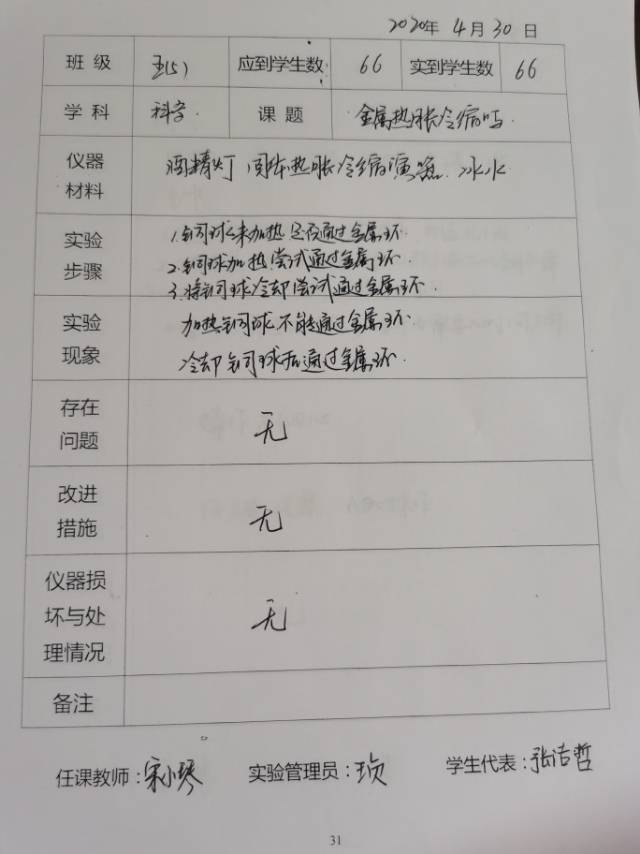 2020年 4月 30日
班级 五(5) 应到学生数 66 实到学生数 66
学科 科学 课题 金属热胀冷缩吗
仪器材料 酒精灯 固体热胀冷缩演 冰水
实验步骤 1.钢球未加热 通过金属环
2.钢球加热尝试通过金属环
3.将钢球冷却尝试通过金属环.
实验现象 加热钢球不能通过金属环
冷却钢球后通过金属环.
存在问题 无
改进措施 无
仪器损坏与处理情况 无
备注
任课教师:宋小琴 实验管理员: 学生代表:张洁哲
31